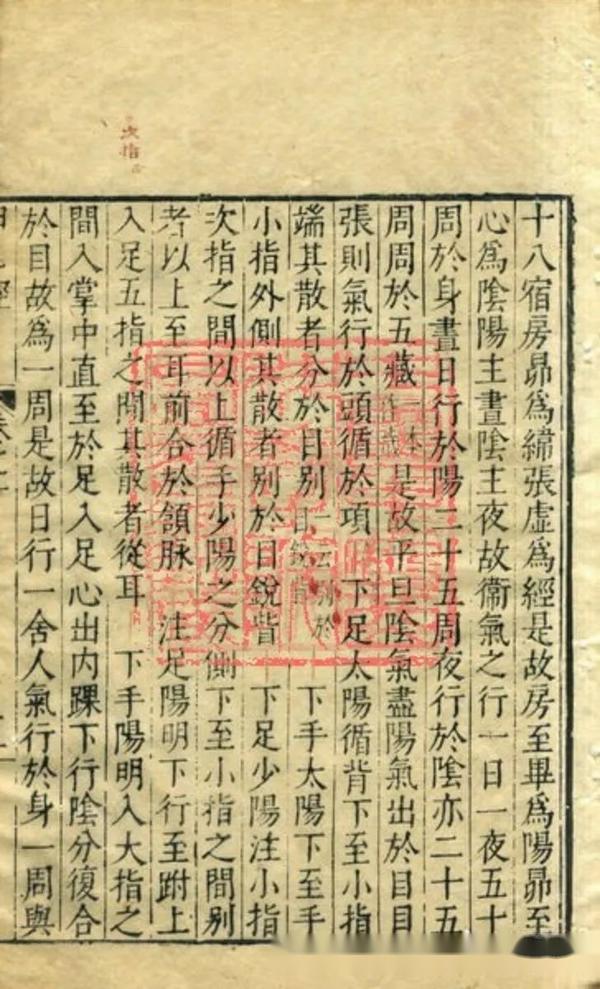 十八宿房昴爲緯張虛爲經是故房至畢爲陽昴至
心爲陰陽主晝陰主夜故衞氣之行一日一夜五十
周於身晝日行於陽二十五周夜行於陰亦二十五
周周於五藏一本作歲是故平旦陰氣盡陽氣出於目目
張則氣行於頭循於項 下足太陽循背下至小指
端其散者分於目別一云別於目銳眥 下手太陽下至手
小指外側其散者別於目銳眥 下足少陽注小指
次指之間以上循手少陽之分側下至小指之間別
者以上至耳前合於頷脉 注足陽明下行至跗上
入足五指之間其散者從耳 下手陽明入大指之
間入掌中直至於足入足心出內踝下行陰分復合
於目故爲一周是故日行一舍人氣行於身一周與
次指